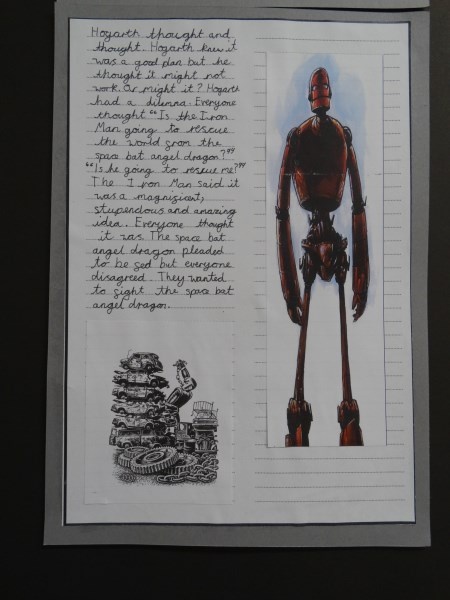 Hogarth thought and
thought. Hogarth knew it
was a good plan but he
thought it might not
work. Or might it? Hogarth
had a dilumna. Everyone
thought "Is the Iron
Man going to rescue
the world from the
space bat angel dragon?!""
"Is he going to rescue me?""
The Iron Man said it
was a magnificent,
stupendous and amazing
idea. Everyone thought
it was. The space bat
angel dragon pleaded
to be fed but everyone
disagreed. They wanted
to fight the space bat
angel dragon.